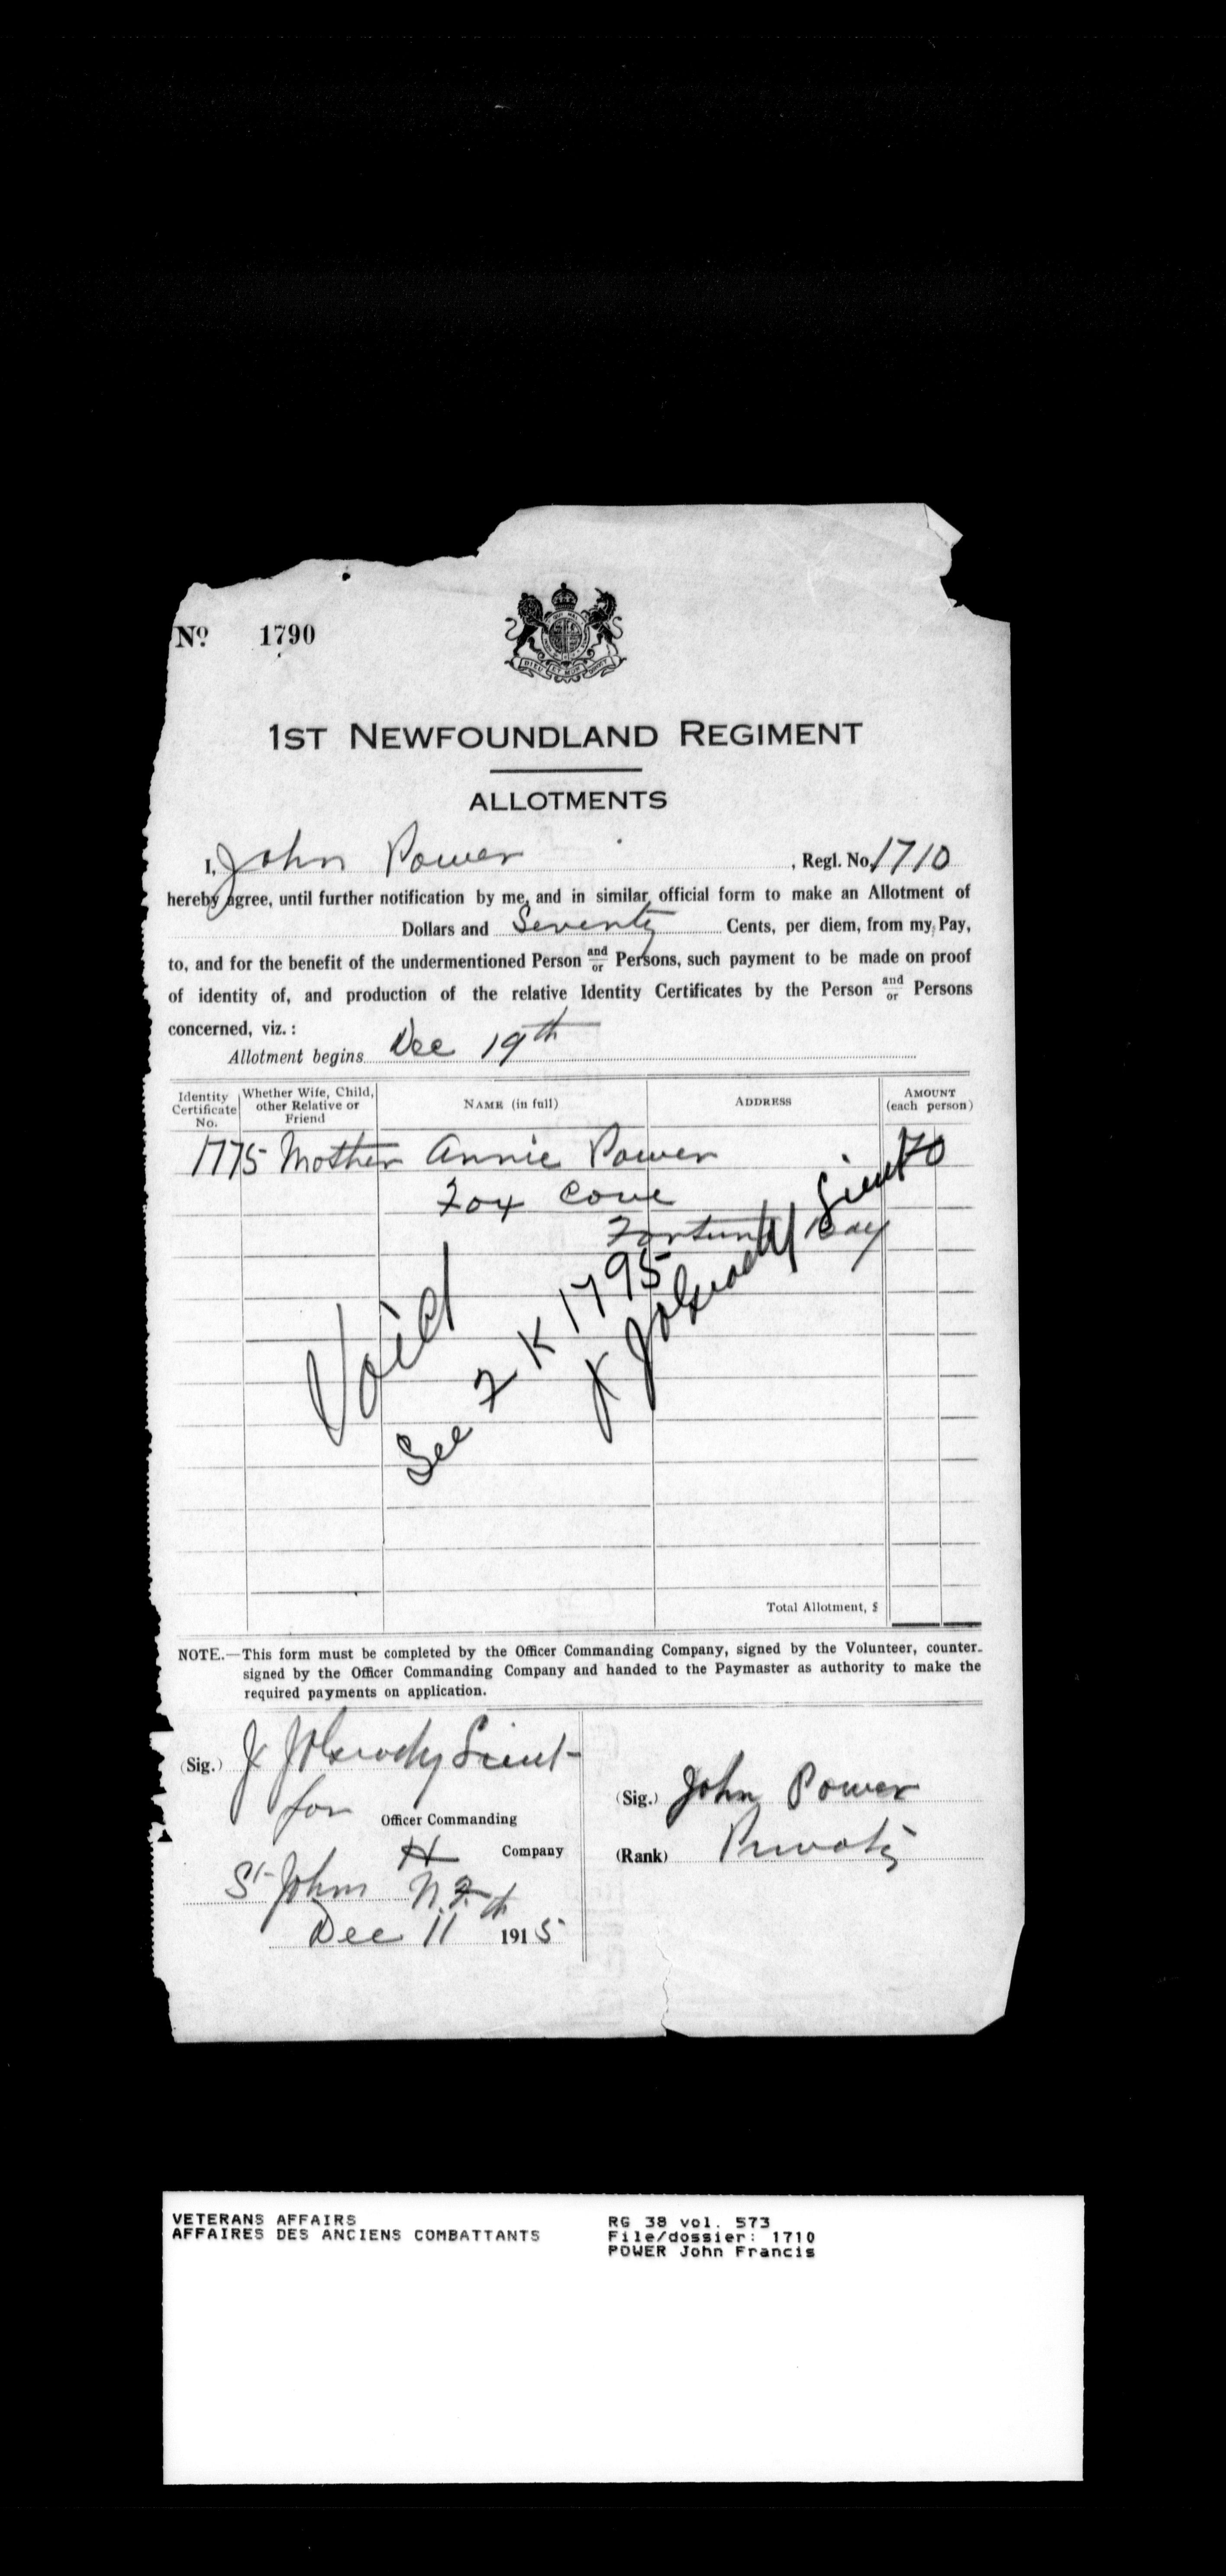 No. 1790
DIEU ET MON DROIT
1ST NEWFOUNDLAND REGIMENT
ALLOTMENTS
I, John Power , Regl. No. 1710
hereby agree, until further notification by me, and in similar official form to make an Allotment of
Dollars and Seventy Cents, per diem, from my Pay,
to, and for the benefit of the undermentioned Person and/or Persons, such payment to be made on proof
of identity of, and production of the relative Identity Certificates by the Person and/or Persons
concerned, viz.:
Allotment begins Dec 19th
Identity Certificate No.
Whether Wife, Child, other Relative or Friend
NAME (in full)
ADDRESS
AMOUNT (each person)
1775 Mother Annie Power 70
Fox Cove
Fortune Bay
Void
See F K 1795
Lieut
Total Allotment, $
NOTE.—This form must be completed by the Officer Commanding Company, signed by the Volunteer, counter-
signed by the Officer Commanding Company and handed to the Paymaster as authority to make the
required payments on application.
(Sig.) Lieut
for Officer Commanding
H Company
St John N.F.
Dec 11th 1915
(Sig.) John Power
(Rank) Private
VETERANS AFFAIRS
AFFAIRES DES ANCIENS COMBATTANTS
RG 38 vol. 573
File/dossier: 1710
POWER John Francis